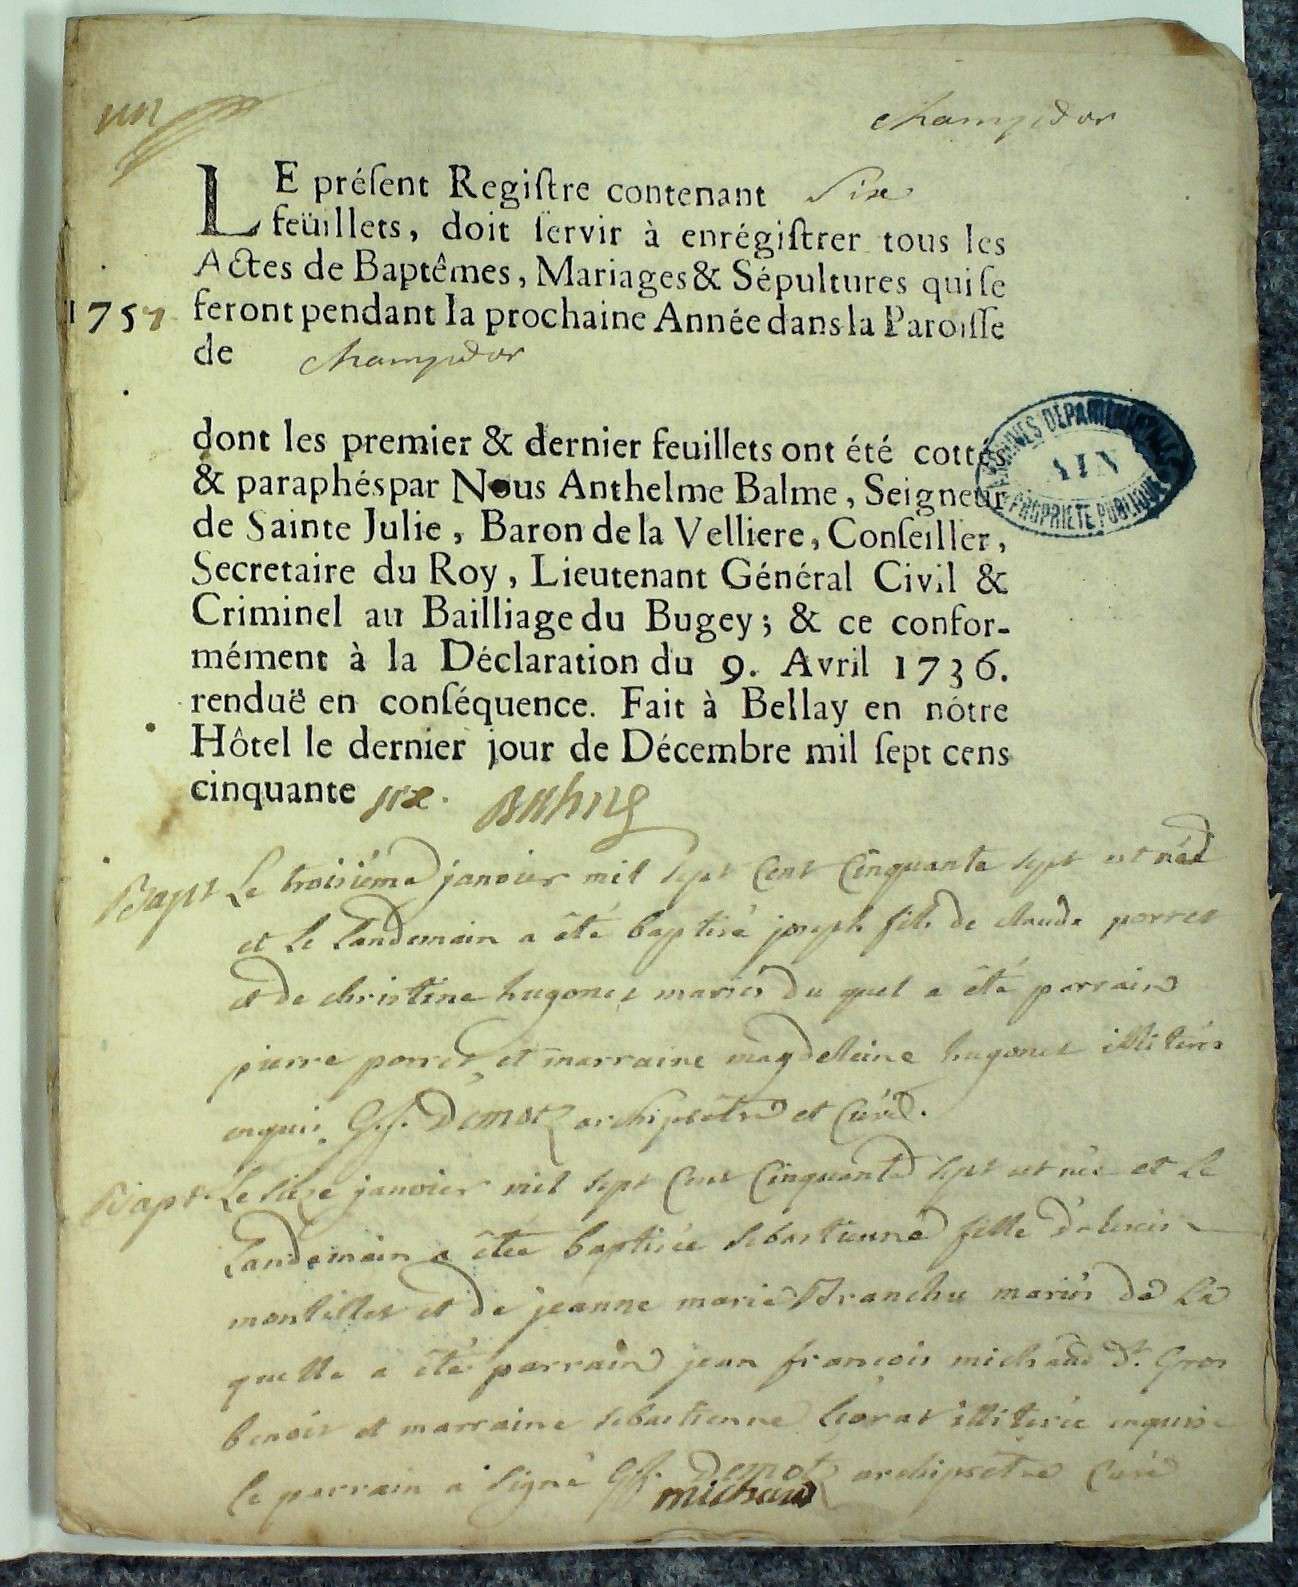 un
champdor
LE préſent Regiſtre contenant Six
feüillets, doit ſervir à enrégiſtrer tous les
Actes de Baptêmes, Mariages & Sépultures qui ſe
1757 feront pendant la prochaine Année dans la Paroiſſe
de champdor
dont les premier & dernier feuillets ont été cottés
& paraphés par Nous Anthelme Balme, Seigneur
de Sainte Julie, Baron de la Velliere, Conſeiller,
Secretaire du Roy, Lieutenant Général Civil &
Criminel au Bailliage du Bugey; & ce confor-
mément à la Déclaration du 9. Avril 1736.
renduë en conſéquence. Fait à Bellay en nótre
Hôtel le dernier jour de Décembre mil ſept cens
cinquante six. Balme
ARCHIVES DÉPARTEMENTALES
AIN
PROPRIÉTÉ PUBLIQUE
Bapt Le troisiéme janvier mil sept Cent Cinquante sept est né
et le landemain a été baptisé joseph fils de claude porret
et de christine hugonet mariés du quel a été parrain
pierre porret et marraine magdeleine hugonet illiterés
enquis. G.f. Demotz archiprêtre et Curé.
Bapt Le seize janvier mil sept Cent Cinquante sept est née et le
landemain a étée baptisée sebastienne fille d'alexis
montillet et de jeanne marie Branche mariés de la
quelle a été parrain jean françois michaud Sr. Gros
benoit et marraine sebastienne illiterée enquise
le parrain a signé G.f. Demotz archiprêtre Curé
michaud